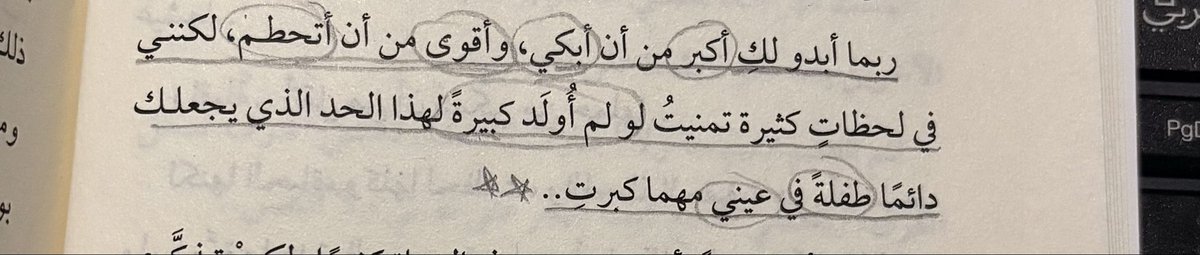 ربما أبدو لكِ أكبر من أن أبكي، وأقوى من أن أتحطم، لكنني
في لحظاتٍ كثيرة تمنيتُ لو لم أُولَد كبيرةً لهذا الحد الذي يجعلك
دائمًا طفلةً في عيني مهما كبرتِ..
ذلك
PgD